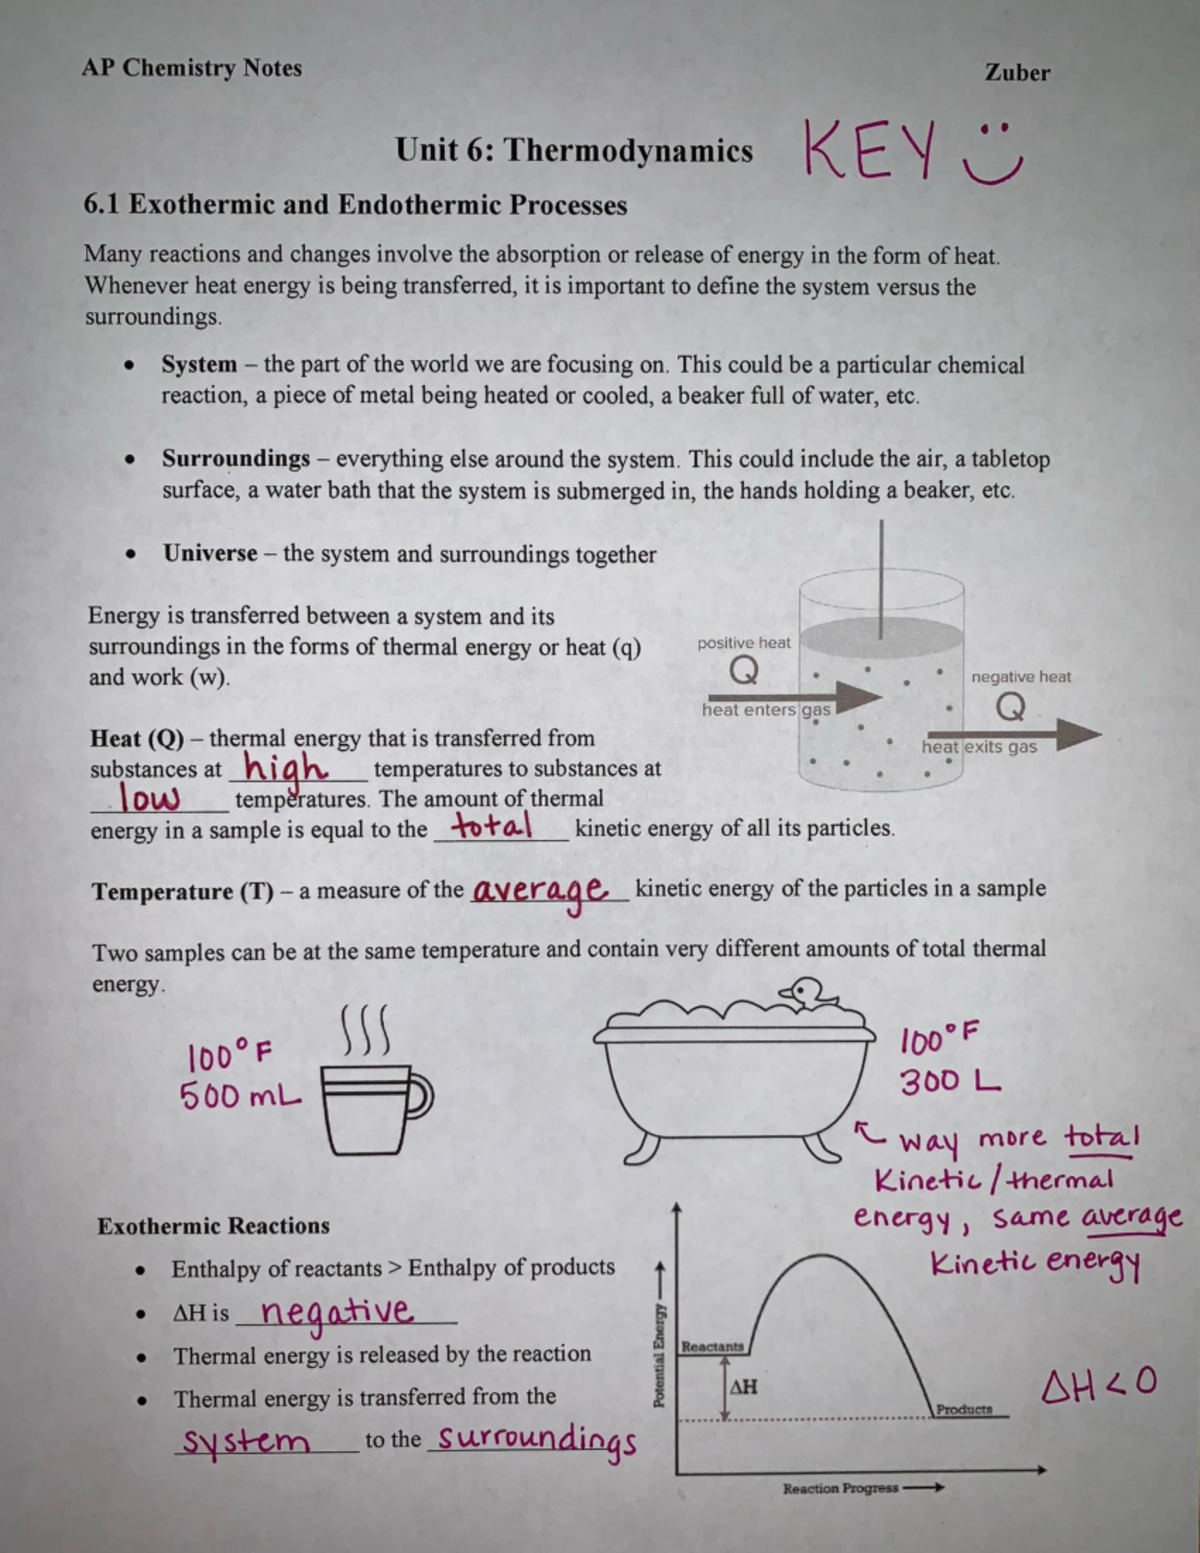 AP Chemistry Notes
Zuber
Unit 6: Thermodynamics
KEY
6.1 Exothermic and Endothermic Processes
Many reactions and changes involve the absorption or release of energy in the form of heat.
Whenever heat energy is being transferred, it is important to define the system versus the
surroundings.
• System – the part of the world we are focusing on. This could be a particular chemical
reaction, a piece of metal being heated or cooled, a beaker full of water, etc.
• Surroundings – everything else around the system. This could include the air, a tabletop
surface, a water bath that the system is submerged in, the hands holding a beaker, etc.
• Universe – the system and surroundings together
Energy is transferred between a system and its
surroundings in the forms of thermal energy or heat (q)
and work (w).
positive heat
Q
heat enters gas
negative heat
Q
heat exits gas
Heat (Q) – thermal energy that is transferred from
substances at high temperatures to substances at
low temperatures. The amount of thermal
energy in a sample is equal to the total kinetic energy of all its particles.
Temperature (T) – a measure of the average kinetic energy of the particles in a sample
Two samples can be at the same temperature and contain very different amounts of total thermal
energy.
100°F
500 mL
100°F
300 L
way more total
Kinetic/thermal
energy, same average
Kinetic energy
Exothermic Reactions
• Enthalpy of reactants > Enthalpy of products
• ΔH is negative
• Thermal energy is released by the reaction
• Thermal energy is transferred from the
system to the surroundings
Potential Energy
Reactants
ΔH
Products
Reaction Progress
ΔH<0